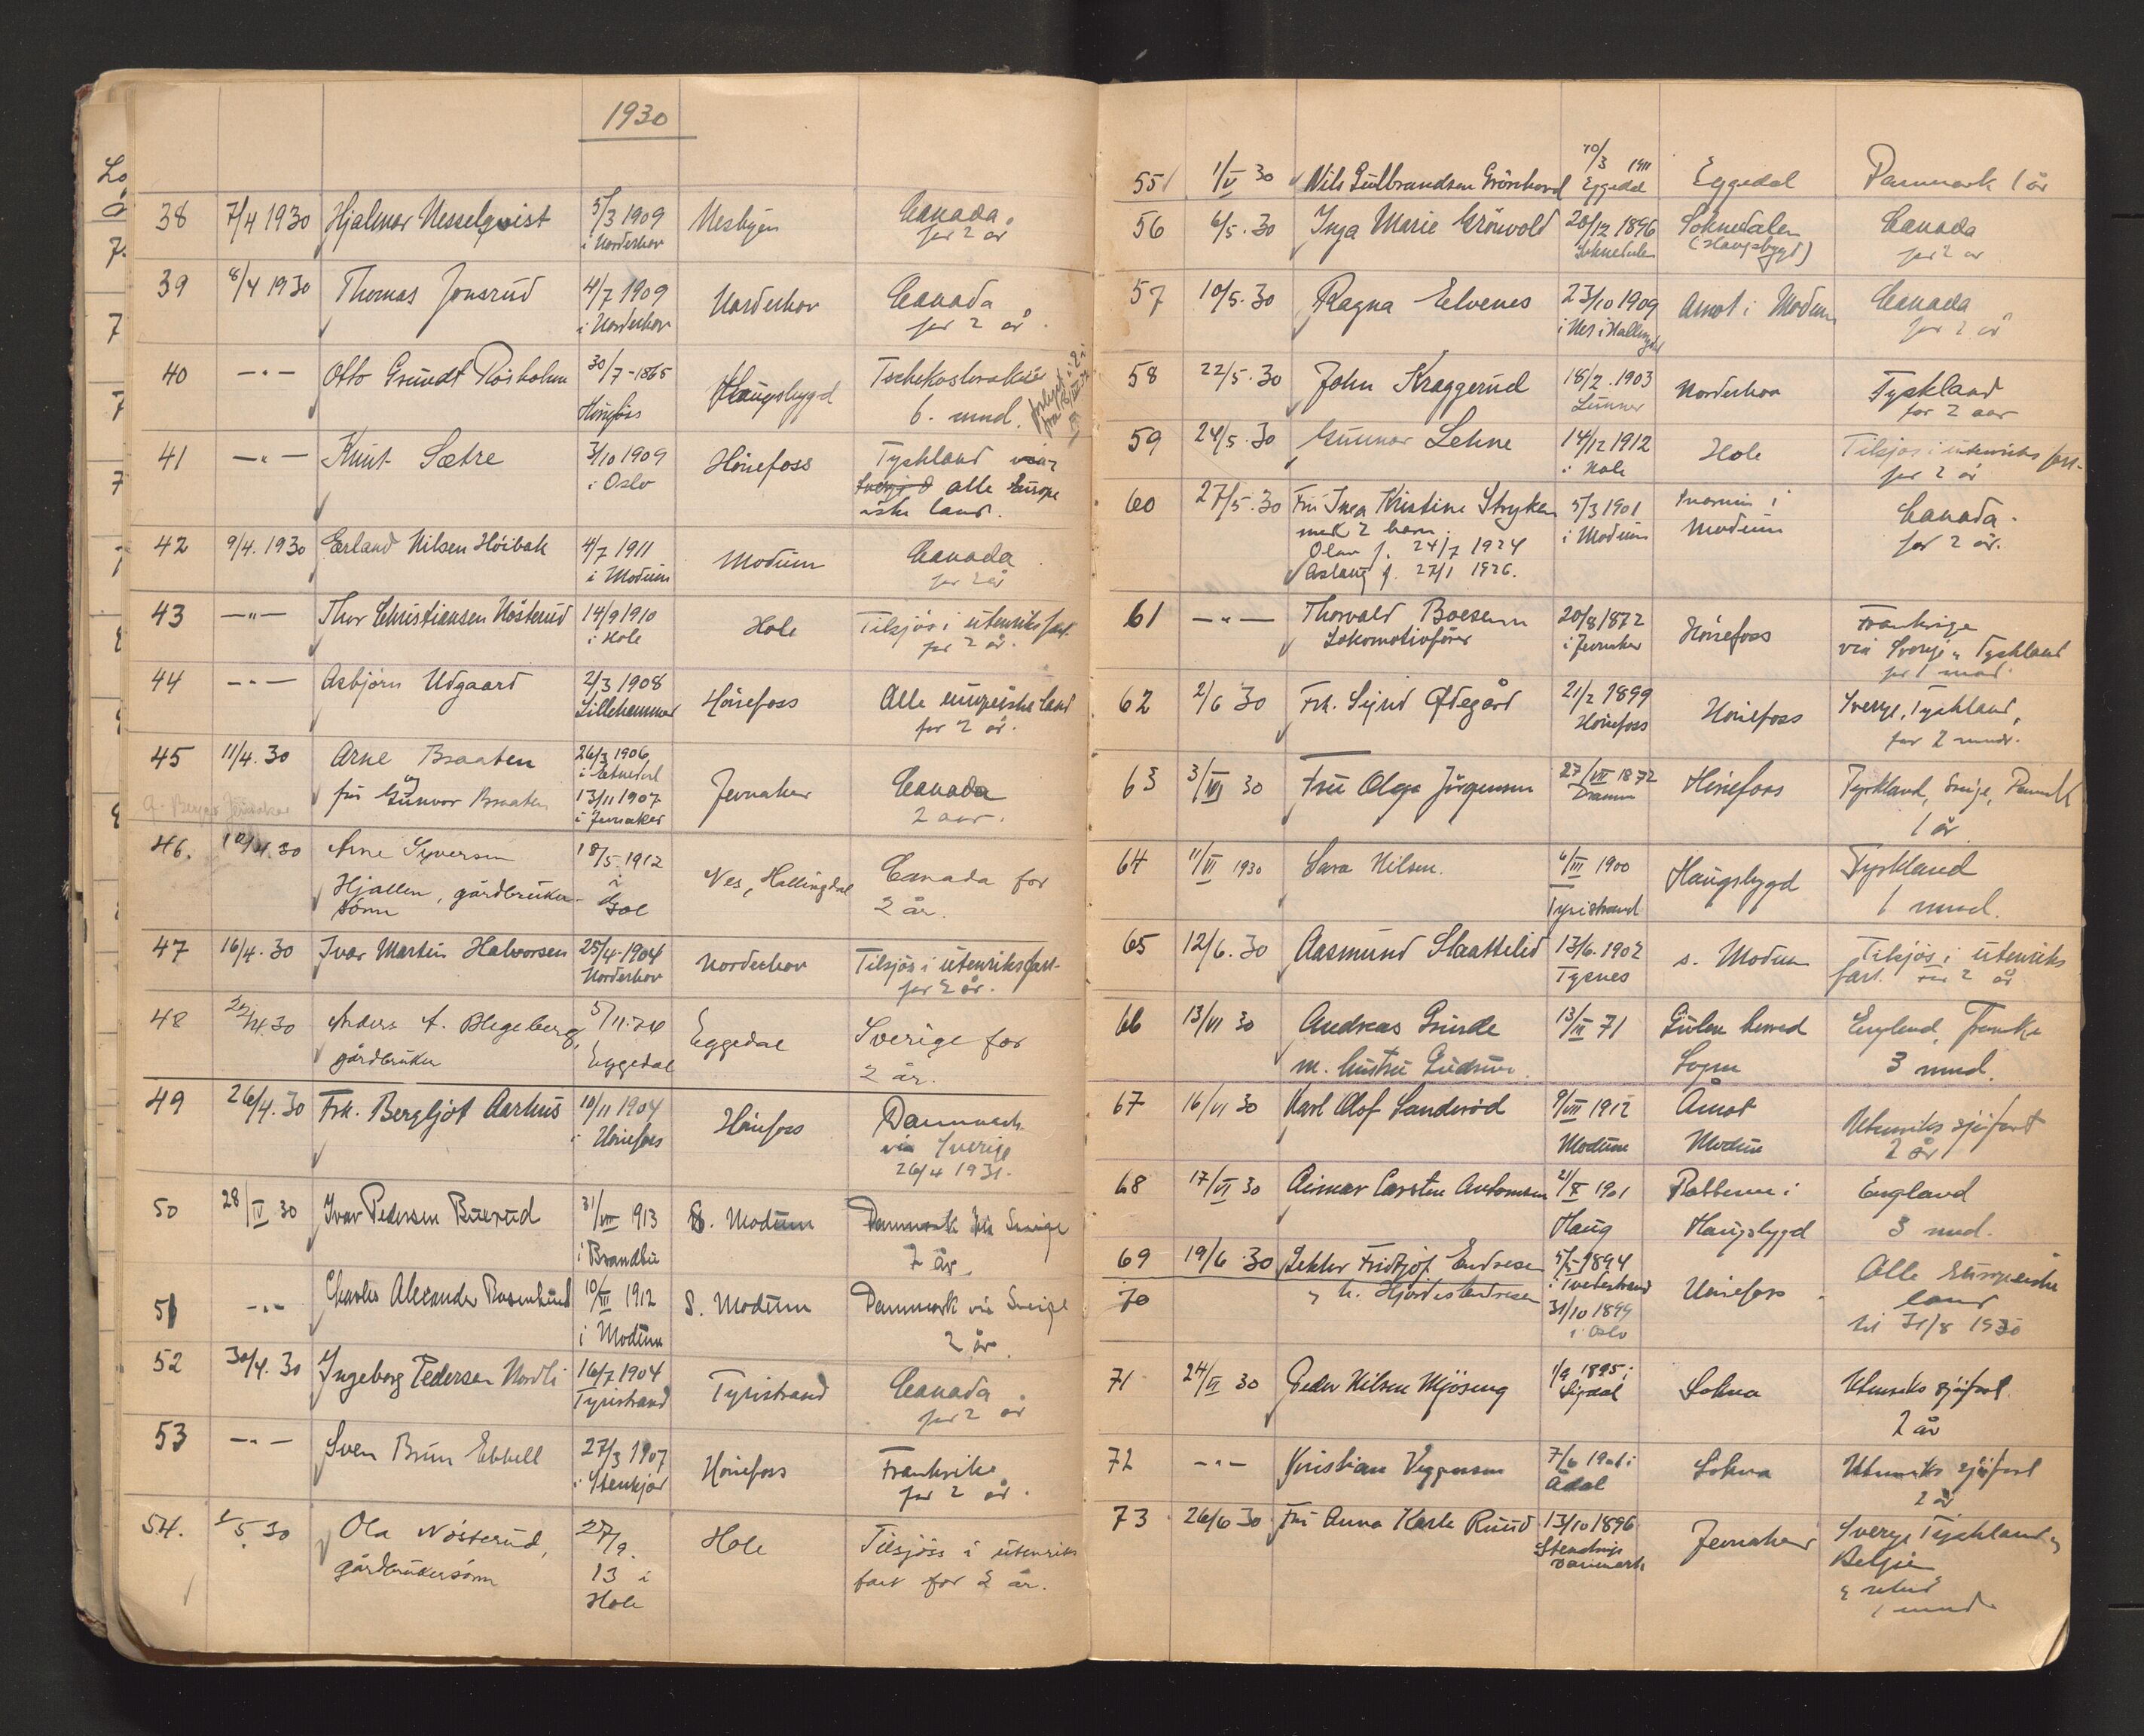 1930
38 7/4 1930 Hjalmar Nesselqvist 5/3 1909 Nesbyen Canada.
i Norderhov for 2 år
39 8/4 1930 Thomas Jonsrud 4/7 1909 Norderhov Canada
i Norderhov for 2 år.
40 —"— Otto Grundt Rosholm 30/7-1865 Haugsbygd Tschekoslovakiet
Hønefoss 6. mnd.
41 —"— Knut Sætre 3/10 1909 Hönefoss Tyskland
i Oslo alle Europe
iske land.
42 9/4. 1930 Erland Nilsen Höibak 4/7 1911 Modum Canada
i Modum for 2 år
43 —"— Thor Christiansen Nösterud 14/9 1910 Hole Tilsjös i utenriksfart.
i Hole for 2 år.
44 —"— Asbjörn Udgaard 2/3 1908 Hönefoss Alle europeiske land
Lillehammer for 2 år.
45 11/4. 30 Arne Braaten 26/3 1906 Jevnaker Canada
i Etnedal
og
fru Gunvor Braaten 13/11 1907 2 aar.
i Jevnaker
46. 10/4. 30 Arne Syversen 18/5. 1912 Nes, Hallingdal Canada for
Hjallen, gårdbruker- i 2 år.
sönn Gol
47 16/4. 30 Ivar Martin Halvorsen 25/4-1904 Norderhov Tilsjös i utenriksfart
Norderhov for 2 år.
48 22/4. 30 Anders A. Blegeberg, 5/11-74 Eggedal Sverige for
gårdbruker Eggedal 2 år.
49 26/4. 30 Frk. Bergljot Aarhus 10/11 1904 Hönefoss Danmark
i Hönefoss via Sverige
26/4 1931.
50 28/IV 30 Ivar Pedersen Buerud 31/VIII 1913 S. Modum Danmark via Sverige
i Brandbu 2 år.
51 -"- Charles Alexander Rosenlund 10/III 1912 S. Modum Danmark via Sverige
i Modum 2 år.
52 30/4. 30 Ingeborg Pedersen Nordli 16/7 1904 Tyristrand Canada.
Tyristrand for 2 år
53 —"— Sven Brun Ebbell 27/3 1907 Hönefoss Frankrike
i Stenkjær for 2 år.
54. 2/5. 30 Ola Nösterud, 27/9. Hole Tilsjöss i utenriks
gårdbrukersönn 13 i fart for 2 år.
Hole
55 1/V 30 Nils Gulbrandsen Grönhovd 10/3 1911 Eggedal Danmark 1 år
Eggedal
56 6/5. 30 Inga Marie Grönvold 20/12 1896 Soknedalen Canada
Soknedalen (Haugsbygd) for 2 år
57 10/5. 30 Ragna Elvenes 23/10 1909 Åmot i Modum Canada
i Nes i Hallingdal for 2 år
58 22/5. 30 John Kraggerud 18/2. 1903 Norderhov Tyskland
Lunner for 2 aar
59 24/5. 30 Gunnar Lehne 14/12 1912 Hole Tilsjös i utenriks fart
i Hole for 2 år
60 27/5. 30 Fru Inga Kristine Stryken 5/3 1901 Snarum i Canada.
med 2 barn. i Modum Modum for 2 år.
Olav f. 24/7 1924
Aslaug f. 27/1 1926.
61 —"— Thorvald Boesen 20/8 1872 Hönefoss Frankrige
Lokomotivförer i Jevnaker via Sverige, Tyskland
for 1 mnd.
62 2/6 30 Frk. Sigrid Ødegård 21/2 1899 Hönefoss Sverige, Tyskland,
Hönefoss for 2 mndr.
63 3/VI 30 Fru Olga Jörgensen 27/VII 1872 Hönefoss Tyskland, Sverige, Danmark
Dramm 1 år
64 11/VI 1930 Sara Nilsen. 6/III 1900 Haugsbygd Tyskland
Tyristrand 1 mnd.
65 12/6. 30 Aasmund Slaattelid 13/6. 1902 s. Modum Tilsjös i utenriks
Tysnes fart. for 2 år
66 13/VI 30 Andreas Grinde 13/III 71 Gulen herred England, Frankr
m. hustru Gudrun. Sogn 3 mnd.
67 16/VI 30 Karl Olof Sanderöd 9/VIII 1912 Åmot Utenriks sjöfart
Modum Modum 2 år
68 17/VI 30 Einar Carsten Antonsen 21/X 1901 Rabberu i England
Haug Haugsbygd 3 mnd.
69 19/6. 30 Lektor Fridtjof Endresen 5/5 1894 Hönefoss Alle Europeiske
i Tvedestrand land
70 " h. Hjördis Endresen 31/10 1899 til 31/8 1930
i Oslo
71 24/VI 30 Peder Nilsen Mjöseng 1/9 1895 i Sokna Utenriks sjöfart
Sigdal 2 år
72 -"- Kristian Viggersen 7/6 1906 i Sokna Utenriks sjöfart
Ådal 2 år
73 26/6 30 Fru Anna Karla Ruud 13/10 1896 Jevnaker Sverige Tyskland,
Danmark Belgien
& retur
1 mnd.